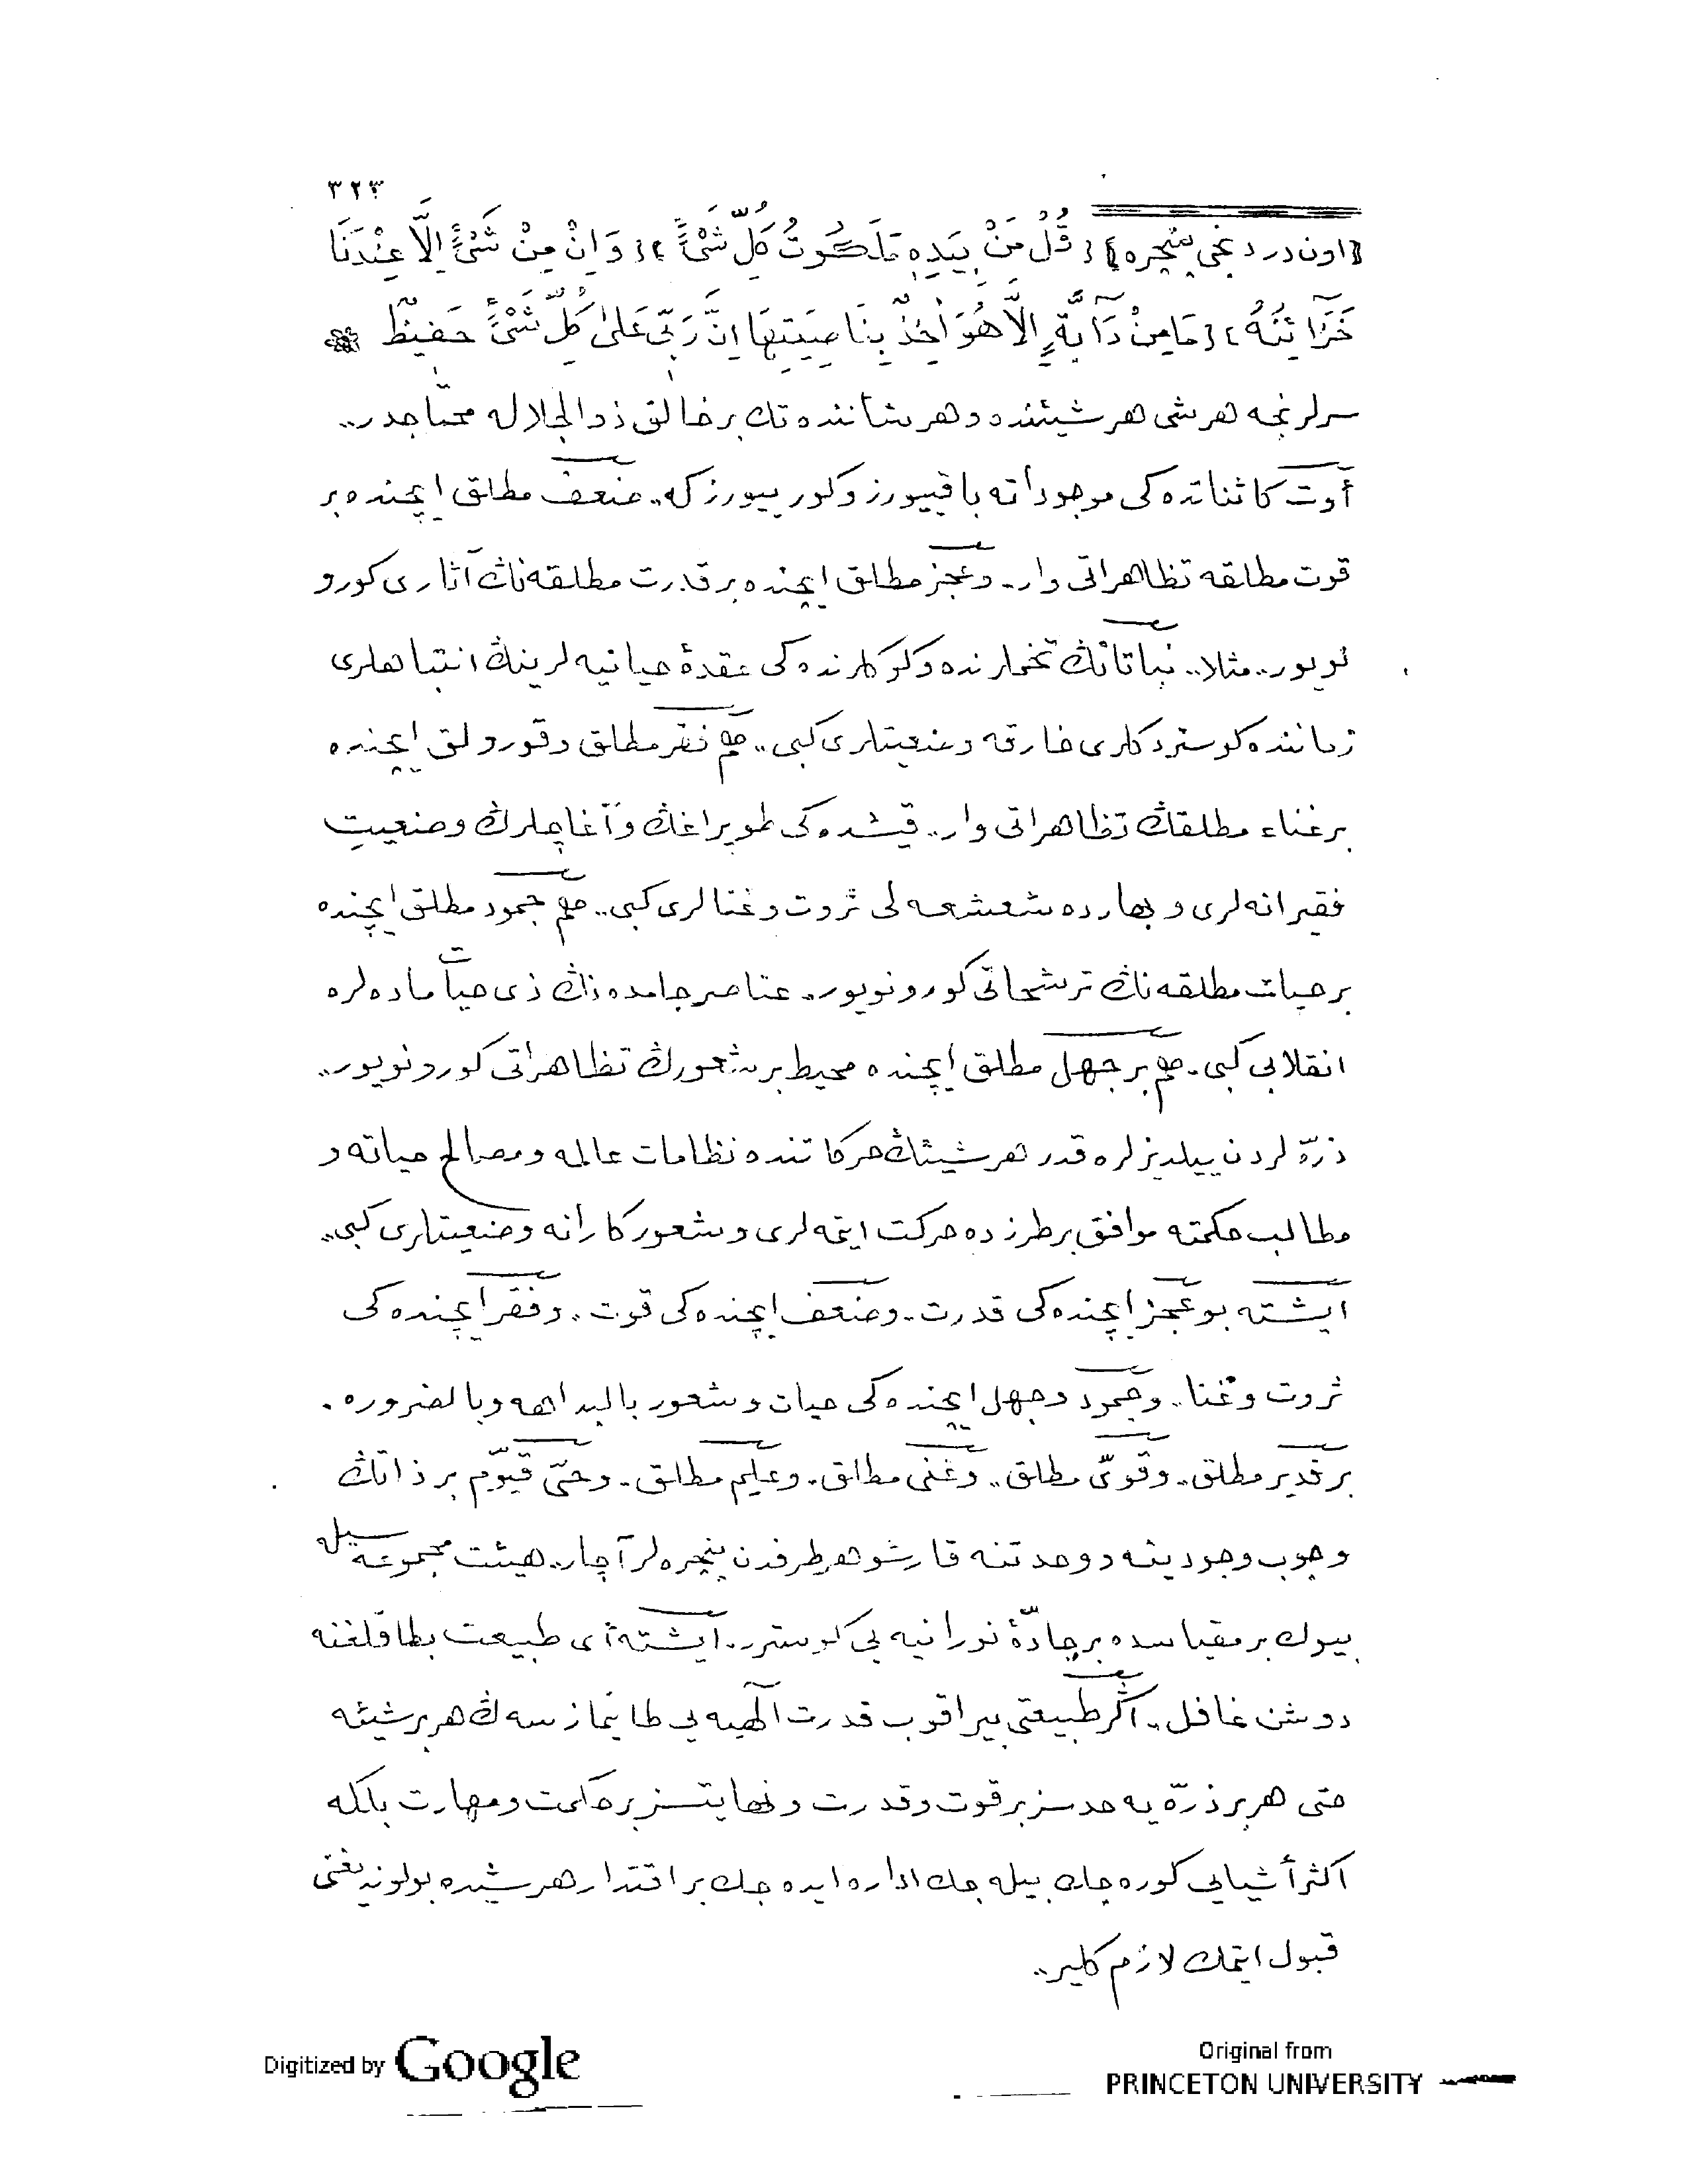 ٣٢٣
﴿اون دردنجی پنجره﴾ ﴿قُلْ مَنْ بِيَدِهِ مَلَكُوتُ كُلِّ شَىْءٍ﴾ ﴿وَاِنْ مِنْ شَىْءٍ اِلَّا عِنْدَنَا
خَزَٓائِنُهُ﴾ ﴿مَا مِنْ دَٓابَّةٍ اِلَّا هُوَ اٰخِذٌ بِنَاصِيَتِهَا اِنَّ رَبّٖى عَلٰى كُلِّ شَىْءٍ حَفٖيظٌ
سرلرنجه هرشی هر شیئنده و هر شاننده تك بر خالق ذوالجلاله محتاجدر..
أوت كائناتده كی موجوداته باقییورز و كوریبورز كه.. ضعف مطلق ایچنده بر
قوت مطلقه تظاهراتی وار.. و عجز مطلق ایچنده بر قدرت مطلقه نڭ آثاری كورو
نویور.. مثلا.. نباتاتڭ تخملرنده و كوكلرنده كی عقدۀ حیاتیه لرینڭ انتباهلری
زماننده كوستردكلری خارقه وضعیتلری كبی.. هم فقر مطلق و قورولق ایچنده
بر غناء مطلقڭ تظاهراتی وار.. قیشده كی طوپراغڭ و آغاچلرڭ وضعیت
فقیرانه لری و بهارده شعشعه لی ثروت و غنالری كبی.. هم جمود مطلق ایچنده
بر حیات مطلقه نڭ ترشحاتی كورونویور.. عناصر جامده نڭ ذی حیات ماده لره
انقلابی كبی.. هم بر جهل مطلق ایچنده محیط بر شعورڭ تظاهراتی كورونویور..
ذرّه لردن ییلدیزلره قدر هر شیئڭ حركاتنده نظامات عالمه و مصالح حیاته و
مطالب حكمته موافق بر طرزده حركت ایتمه لری و شعوركارانه وضعیتلری كبی..
ایشته بو عجز ایچنده كی قدرت.. و ضعف ایچنده كی قوت.. و فقر ایچنده كی
ثروت و غنا.. و جمود و جهل ایچنده كی حیات و شعور بالبداهه و بالضروره.
بر قدیر مطلق.. و قویّ مطلق.. و غنی مطلق.. و علیم مطلق.. و حیّ قیوّم بر ذاتڭ
وجوب وجودینه و وحدتنه قارشو هر طرفدن پنجره لر آچار.. هیئت مجموعه سیله
بیوك بر مقیاسده بر جادّۀ نورانیه یی كوسترر.. ایشته ای طبیعت بطاقلغنه
دوشن غافل.. اگر طبیعتی بیراقوب قدرت آلهیه یی طانیمازسه ڭ هر بر شیئه
حتی هر بر ذرّه یه حدسز بر قوت و قدرت و نهایتسز بر حكمت و مهارت بلكه
اكثر أشیایی كوره جك بیله جك اداره ایده جك بر اقتدار هر شیده بولوندیغنی
قبول ایتمك لازم كلیر..
Digitized by Google
Original from
PRINCETON UNIVERSITY